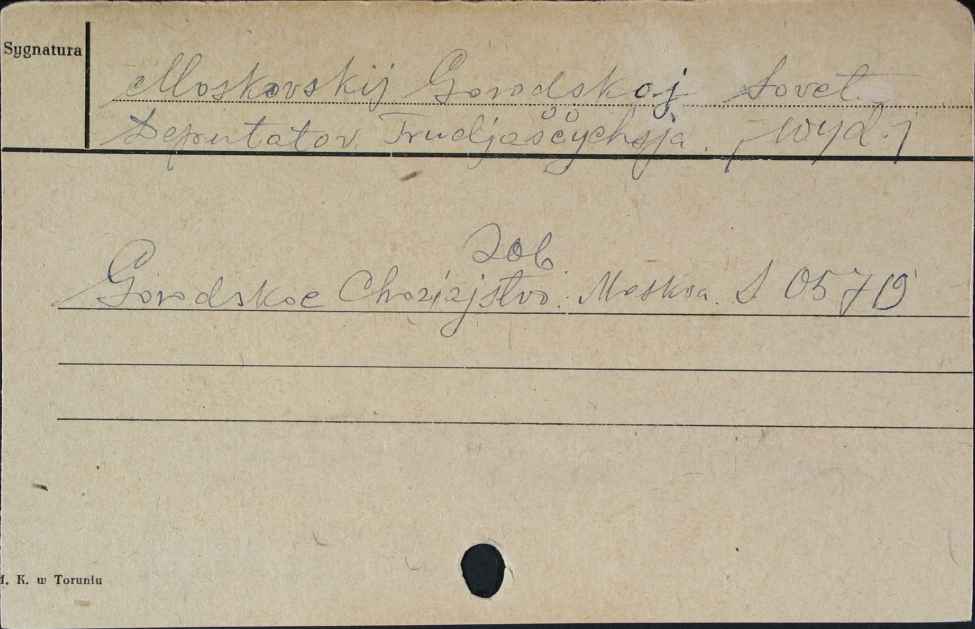 Sygnatura
Moskovskij Gorodskoj Sovet.
Deputatov Trudjaščychsja. , wyd.,
Zob.
Gorodskoe Chozjajstvo. Moskva. S 05719
M. K. w Toruniu